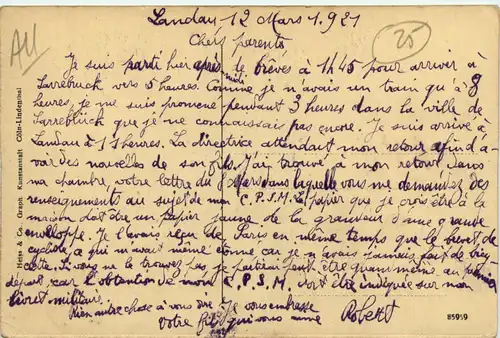 Landau 12 Mars 1921
Chers parents
All
25
Je suis parti hier après midi de Brêves à 1h45 pour arriver à
Sarrebruck vers 5 heures. Comme je n'avais un train qu'à 8
heures, je me suis promené pendant 3 heures dans la ville de
Sarrebrück que je ne connaissais pas encore. Je suis arrivé à
Landau à 11 heures. La directrice attendant mon retour afin d'a-
voir des nouvelles de son fils. J'ai trouvé à mon retour dans
ma chambre, votre lettre du 9 Mars dans laquelle vous me demandez des
renseignements au sujet de mon C.P.S.M. Le papier que je crois être à la
maison doit être un papier jaune de la grandeur d'une grande
enveloppe. Je l'avais reçu de Paris en même temps que le brevet de
cycliste, ce qui m'avait même étonné car je n'avais jamais fait de bicy-
clette. Si vous ne le trouvez pas, je partirai peut être quand même au premier
départ car l'obtention de mon C.P.S.M. doit être indiquée sur mon
livret militaire.
Rien autre chose à vous dire. Je vous embrasse
votre fils qui vous aime Robert
Heiss & Co. Graph. Kunstanstalt Cöln-Lindenthal
85959